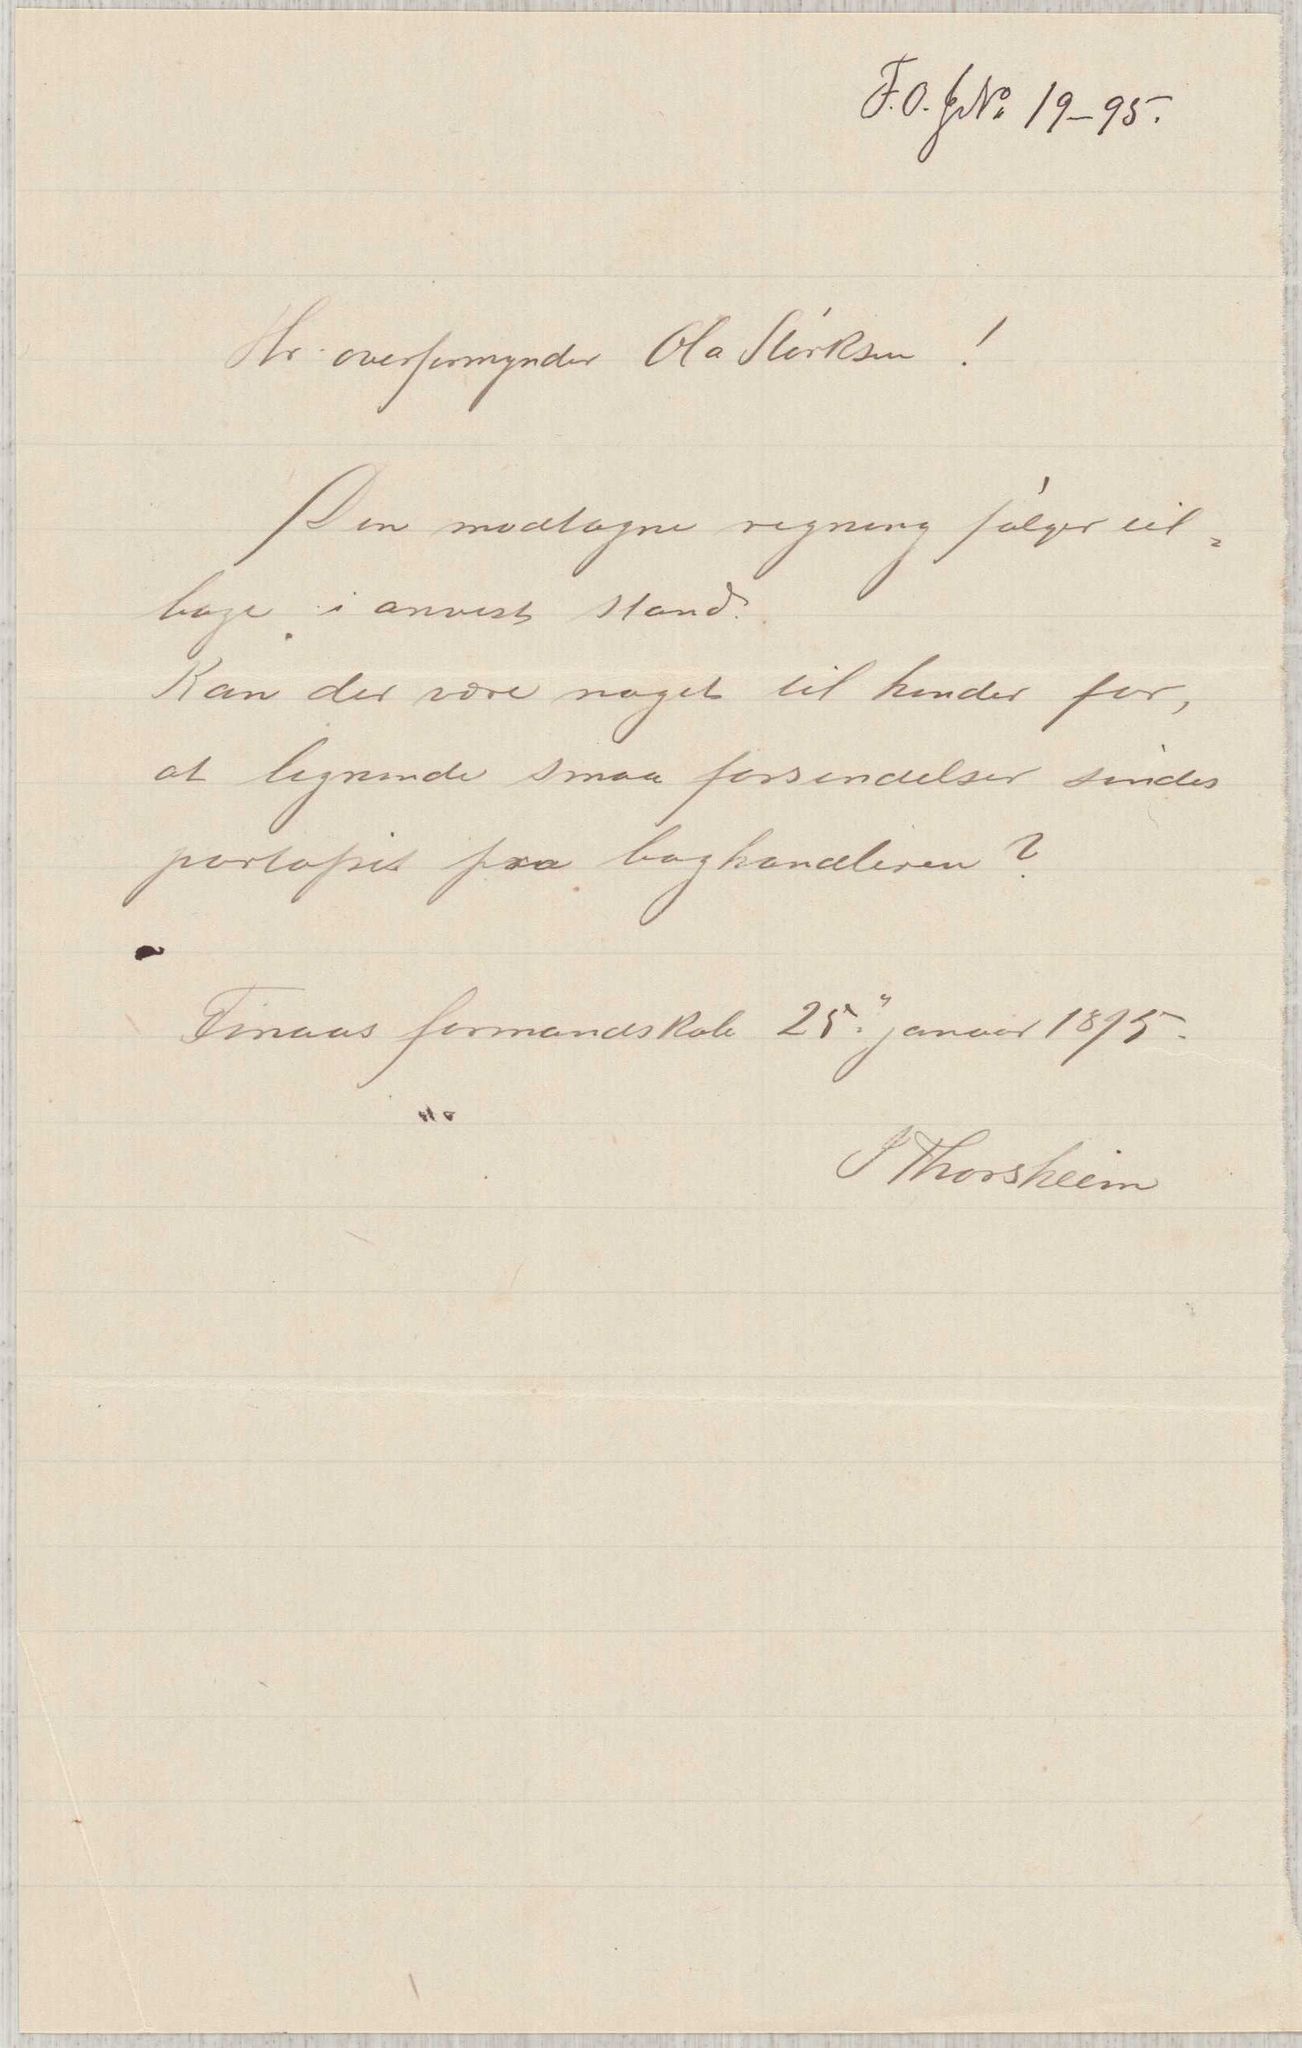 F.O. J№ 19-95.
Hr. overformynder Ola Störksen!
Den modtagne regning følger til=
bage i anvist stand.
Kan der være noget til hinder for,
at lignende smaa forsendelser sendes
portofrit fra boghandleren?
Finaas formandskab 25." januar 1895.
J Thorsheim